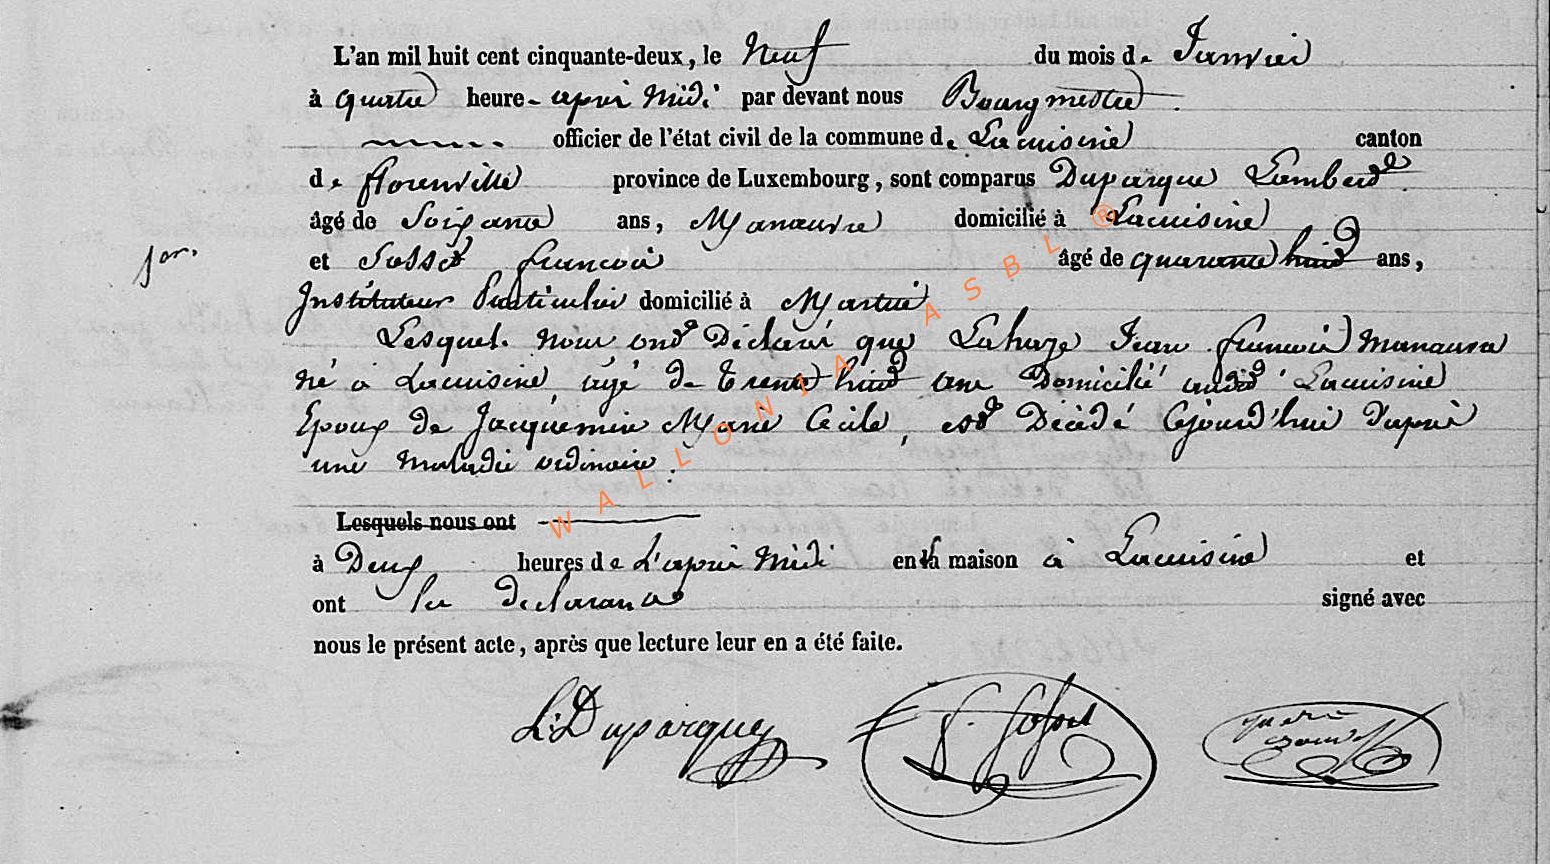 L'an mil huit cent cinquante-deux, le Neuf du mois de Janvier
à quatre heure après Midi par devant nous Bourgmestre
officier de l'état civil de la commune de Lacuisine canton
de florenville province de Luxembourg, sont comparus Duparque Lambert
âgé de Soixante ans, Manœuvre domicilié à Lacuisine
et Josset françois âgé de quarante huit ans,
Instituteur Particulier domicilié à Martué
Lesquels nous ont Déclaré que Lahaye Jean françois manœuvre
né à Lacuisine âgé de trente huit ans Domicilié audit Lacuisine
Epoux de Jacquemin Marie Cecile, est Décédé Cejourd'hui d'après
une maladie ordinaire.
Lesquels nous ont
à Deux heures de L'après Midi en sa maison à Lacuisine et
ont les declarants signé avec
nous le présent acte, après que lecture leur en a été faite.
L. Duparque
WALLONIA ASBL ®